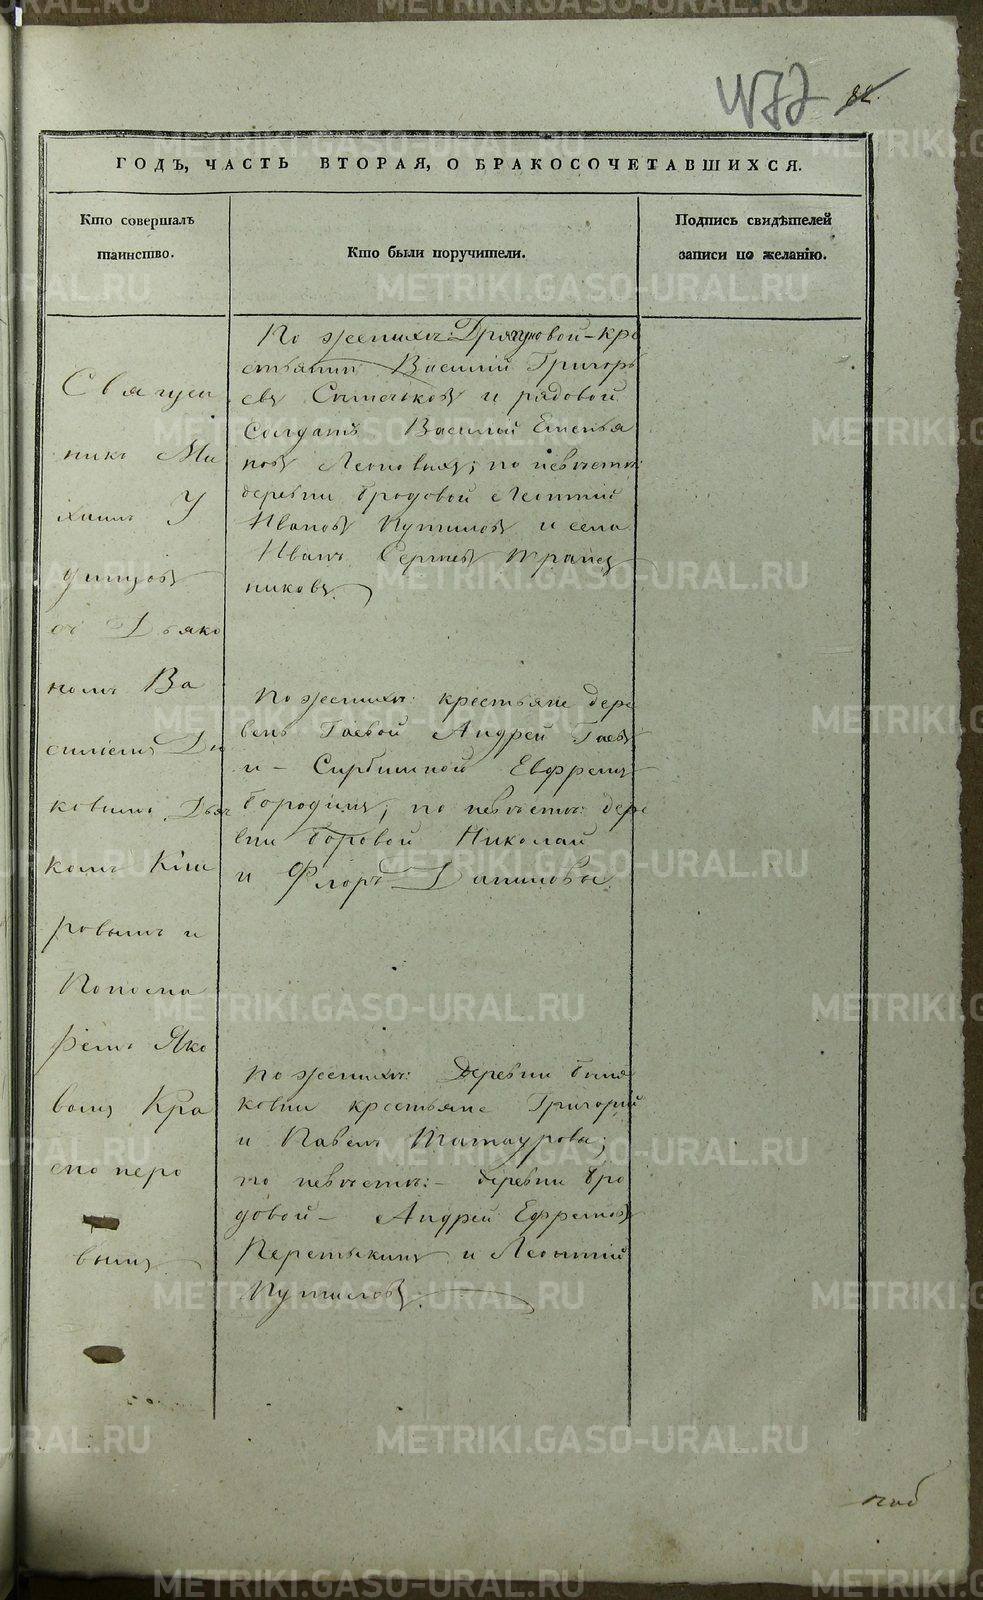 82.
ГОДЪ, ЧАСТЬ ВТОРАЯ, О БРАКОСОЧЕТАВШИХСЯ.
Кто совершалъ
таинство.
Кто были поручители.
Подпись свидѣтелей
записи по желанію.
Священ
никъ Ми
хаилъ У
динцовъ
съ Дьяко
номъ Ва
силіемъ
ковымъ Дьяч
комъ Ки
ровымъ и
Пономa
ремъ Яко
вомъ Кра
сноперо
вымъ
По женихѣ: кре
стьянинъ Василій Григорь
евъ Сытниковъ и рядовой
Солдатъ Василій Емелья
новъ Леоновыхъ; по невѣстѣ:
деревни Бродовой Леонтій
Ивановъ Путиловъ и села
Иванъ Сергѣевъ
никовъ.
По женихѣ: крестьяне дере
вень Гаевой Андрей Гаевъ
и Ефремъ
Бородинъ; по невѣстѣ: дере
вни Боровой Николай
и Флоръ Даниловы.
По женихѣ: Деревни
ковки крестьяне Григорій
и Павелъ Татауровы;
по невѣстѣ: деревни Бро
довой Андрей Ефремовъ
Перетыкинъ и Леонтій
Путиловъ.
METRIKI.GASO-URAL.RU